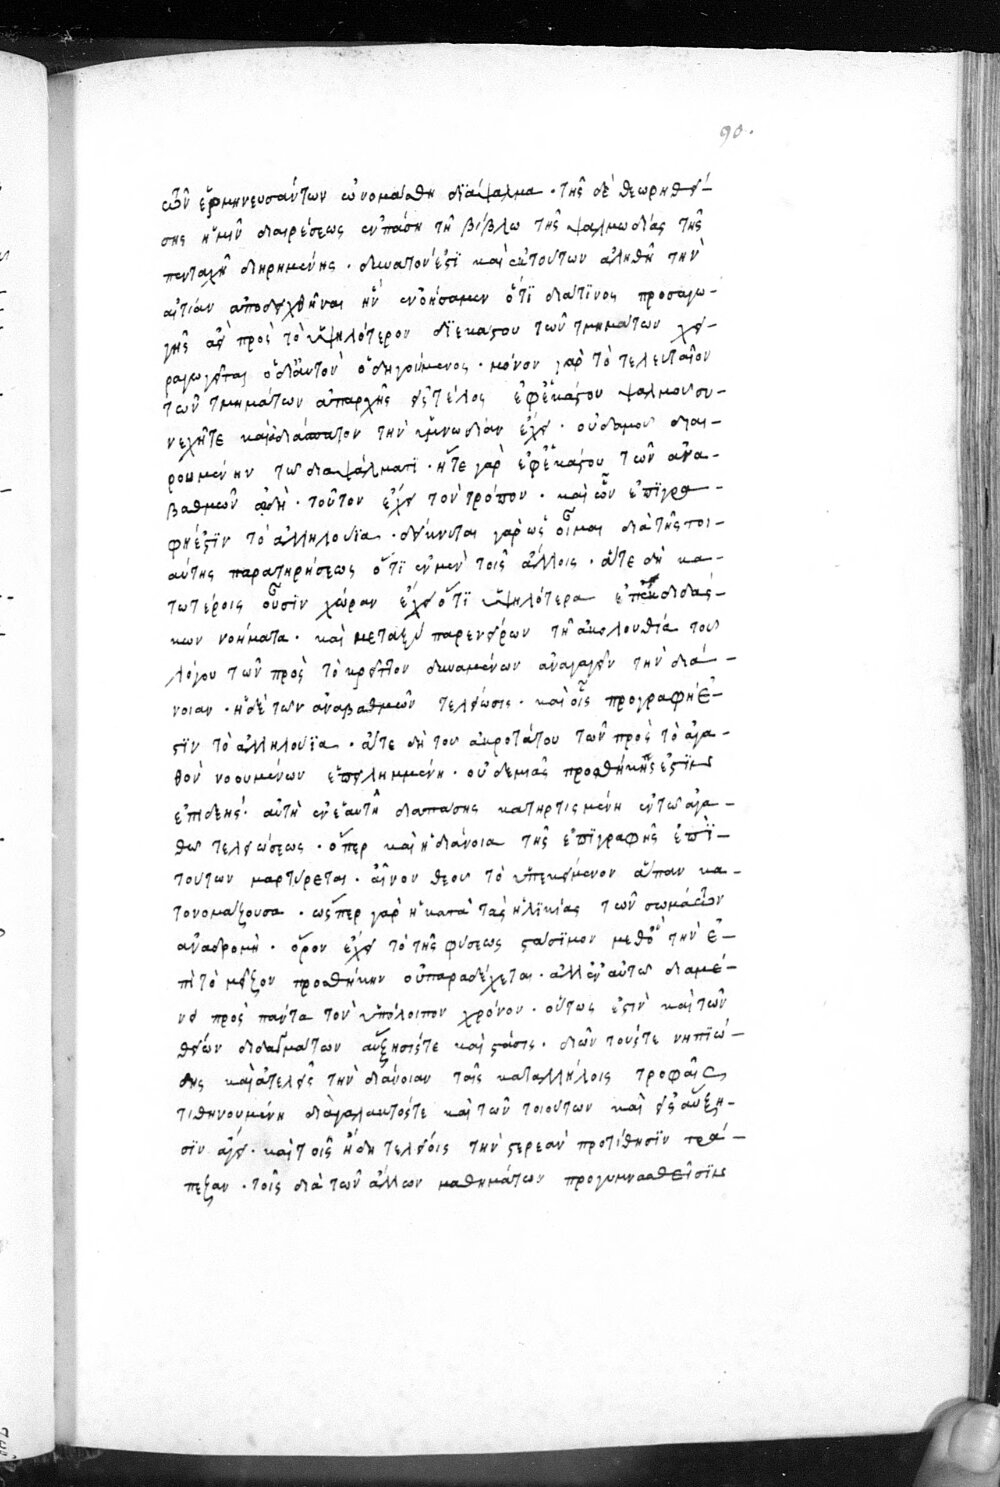 90.
τῶν ἑρμηνευσάντων ὠνομάσθη διάψαλμα · τῆς δὲ θεωρηθεί-
σης ἡμῖν διαιρέσεως ἐν πάσῃ τῇ βίβλῳ τῆς ψαλμωδίας τῆς
πενταχῆ διηρημένης · δυνατὸν ἐστὶ καὶ ἐκ τούτων ἀληθῆ τὴν
αἰτίαν ἀποδειχθῆναι ἣν ἐνοήσαμεν ὅτι διά τινος προσαγω-
γῆς ἀεὶ πρὸς τὸ ὑψηλότερον δι' ἑκάστου τῶν τμημάτων χει-
ραγωγεῖται ὁ δι' αὐτῶν ὁδηγούμενος · μόνον γὰρ τὸ τελευταῖον
τῶν τμημάτων ἀπαρχῆς εἰς τέλος ἐφ' ἑκάστου ψαλμοῦ συ-
νεχῆ τε καὶ ἀδιάσπαστον τὴν ὑμνωδίαν ἔχει · οὐδαμοῦ διαι-
ρουμένην τῷ διαψάλματι · ἥτε γὰρ ἐφ' ἑκάστου τῶν ἀνα-
βαθμῶν ὠδὴ · τοῦτον ἔχει τὸν τρόπον · καὶ ὧν ἐπιγρα-
φή ἐστιν τὸ ἀλληλούϊα · δείκνυται γὰρ ὡς οἶμαι διὰ τῆς τοι-
αύτης παρατηρήσεως ὅτι ἐν μὲν τοῖς ἄλλοις · ἅτε δὴ κα-
τωτέροις οὖσιν χώραν ἔχει ὅτι ὑψηλότερα ἐπεκδιδάσ-
κων νοήματα · καὶ μεταξὺ παρενείρων τῇ ἀκολουθίᾳ τοῦ
λόγου τῶν πρὸς τὸ κρεῖττον δυναμένων ἀναγαγεῖν τὴν διά-
νοιαν · ἡ δὲ τῶν ἀναβαθμῶν τελείωσις · καὶ οἷς προγραφή ἐ-
στιν τὸ ἀλληλούϊα · ἅτε δὴ τοῦ ἀκροτάτου τῶν πρὸς τὸ ἀγα-
θὸν νοουμένων ἐπειλημμένη · οὐδεμιᾶς προσθήκης ἐστὶν
ἐπιδεής · αὐτὴ ἐν ἑαυτῇ διαπάσης κατηρτισμένη ἐν τῷ ἀγα-
θῷ τελειώσεως · ὅπερ καὶ ἡ διάνοια τῆς ἐπιγραφῆς ἐπὶ
τούτων μαρτύρεται · αἶνον θεοῦ τὸ ὑπεκείμενον ἅπαν κα-
τονομάζουσα · ὥσπερ γὰρ ἡ κατὰ τὰς ἡλικίας τῶν σωμάτων
ἀναδρομὴ · ὅρον ἔχει τὸ τῆς φύσεως στάσιμον μεθ' ὃν τὴν ἐ-
πὶ τὸ μεῖζον προσθήκην οὐ παραδέχεται · ἀλλ' ἐν αὐτῷ διαμέ-
νει πρὸς πάντα τὸν ὑπόλοιπον χρόνον · οὕτως ἐστὶν καὶ τῶν
θείων διδαγμάτων αὔξησίς τε καὶ στάσις · διῶν τούς τε νηπιώ-
δης καὶ ἀτελεῖς τὴν διάνοιαν ταῖς καταλλήλοις τροφαῖς
τιθηνουμένη διὰ γάλακτός τε καὶ τῶν τοιούτων καὶ εἰς αὔξη-
σιν ἄγει · καὶ τοῖς ἤδη τελείοις τὴν στερεὰν προτίθησιν τρά-
πεζαν · τοῖς διὰ τῶν ἄλλων μαθημάτων προγυμνασθεῖσιν